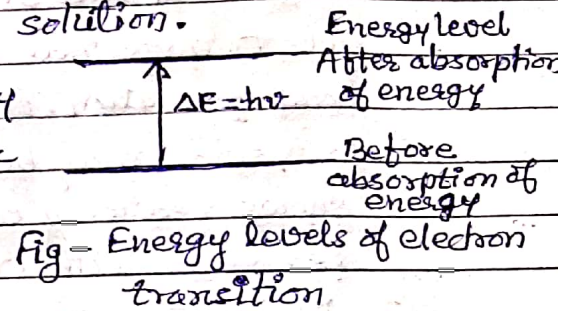 solution.
Energy level
After absorption
of energy
ΔE = hν
Before
absorption of
energy
Fig - Energy levels of electron
transition